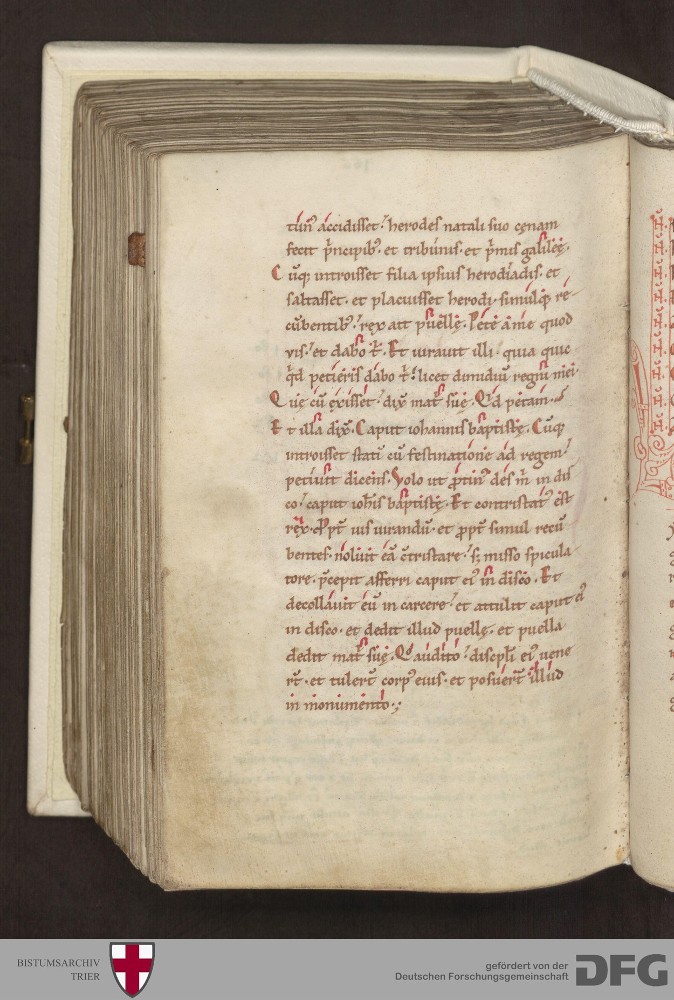 tun̄ accidisset. herodes natali suo cęnam
fecit p̄ncipib;. et tribunis. et p̄mis galileę.
Cūq; introisset filia ipsius herodiadis. et
saltasset. et placuisset herodi. simulq; re-
cūbentib;. rex ait puellę. Pete a me quod
vis. et dabo t̄. Et iuravit illi. quia quic
q̄d petieris dabo t̄. licet dimidiū regni mei.
Quę cū exisset. dix̄ mat̄ suę. Q̄d petam.
Et illa dix̄. Caput iohannis baptistę. Cūq;
introisset stati cū festinatione ad regem.
petivit dicens. Volo ut p̄tin̄ des m̄ in dis
co. caput ioh̄is baptistę. Et contristat̄ ēst
rex. P̄pt̄ ius iurandū. et p̄pt̄ simul recū
bentes. noluit eā c̄tristare. s; misso spicula-
tore. p̄cepit afferri caput ei᾽ in disco. Et
decollavit eū in carcere. et attulit caput ei᾽
in disco. et dedit illud puellę. et puella
dedit mat̄ suę. Q̄ audito. discipli ei᾽ vene
rt̄. et tulert̄ corp᾽ eius. et posuert̄ illud
in monumento.;
BISTUMSARCHIV
TRIER
gefördert von der
Deutschen Forschungsgemeinschaft
DFG